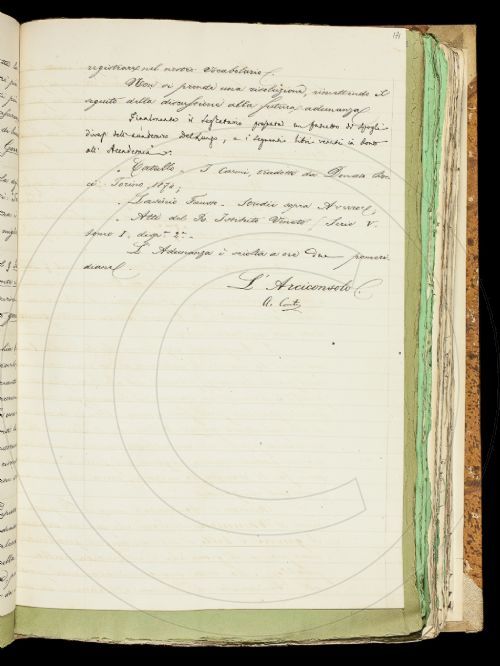 registrare nel nostro Vocabolario.
Non si prende una risoluzione, rimettendo il
seguito della discussione alla futura adunanza.
Finalmente il Segretario presenta un di spogli
dell'Accademico Del Lungo, e i seguenti libri venuti in dono
all' Accademia:
Catullo - I Carmi, tradotti da Donato Boc
ci. Torino, 1874;
Lasinio Fausto - Studii sopra Averroe;
Atti del R. Istituto Veneto, Serie V.
tomo I. disp. 2ª.
L' Adunanza è sciolta a ore due pomeri
diane.
L' Arciconsolo
A. Conti